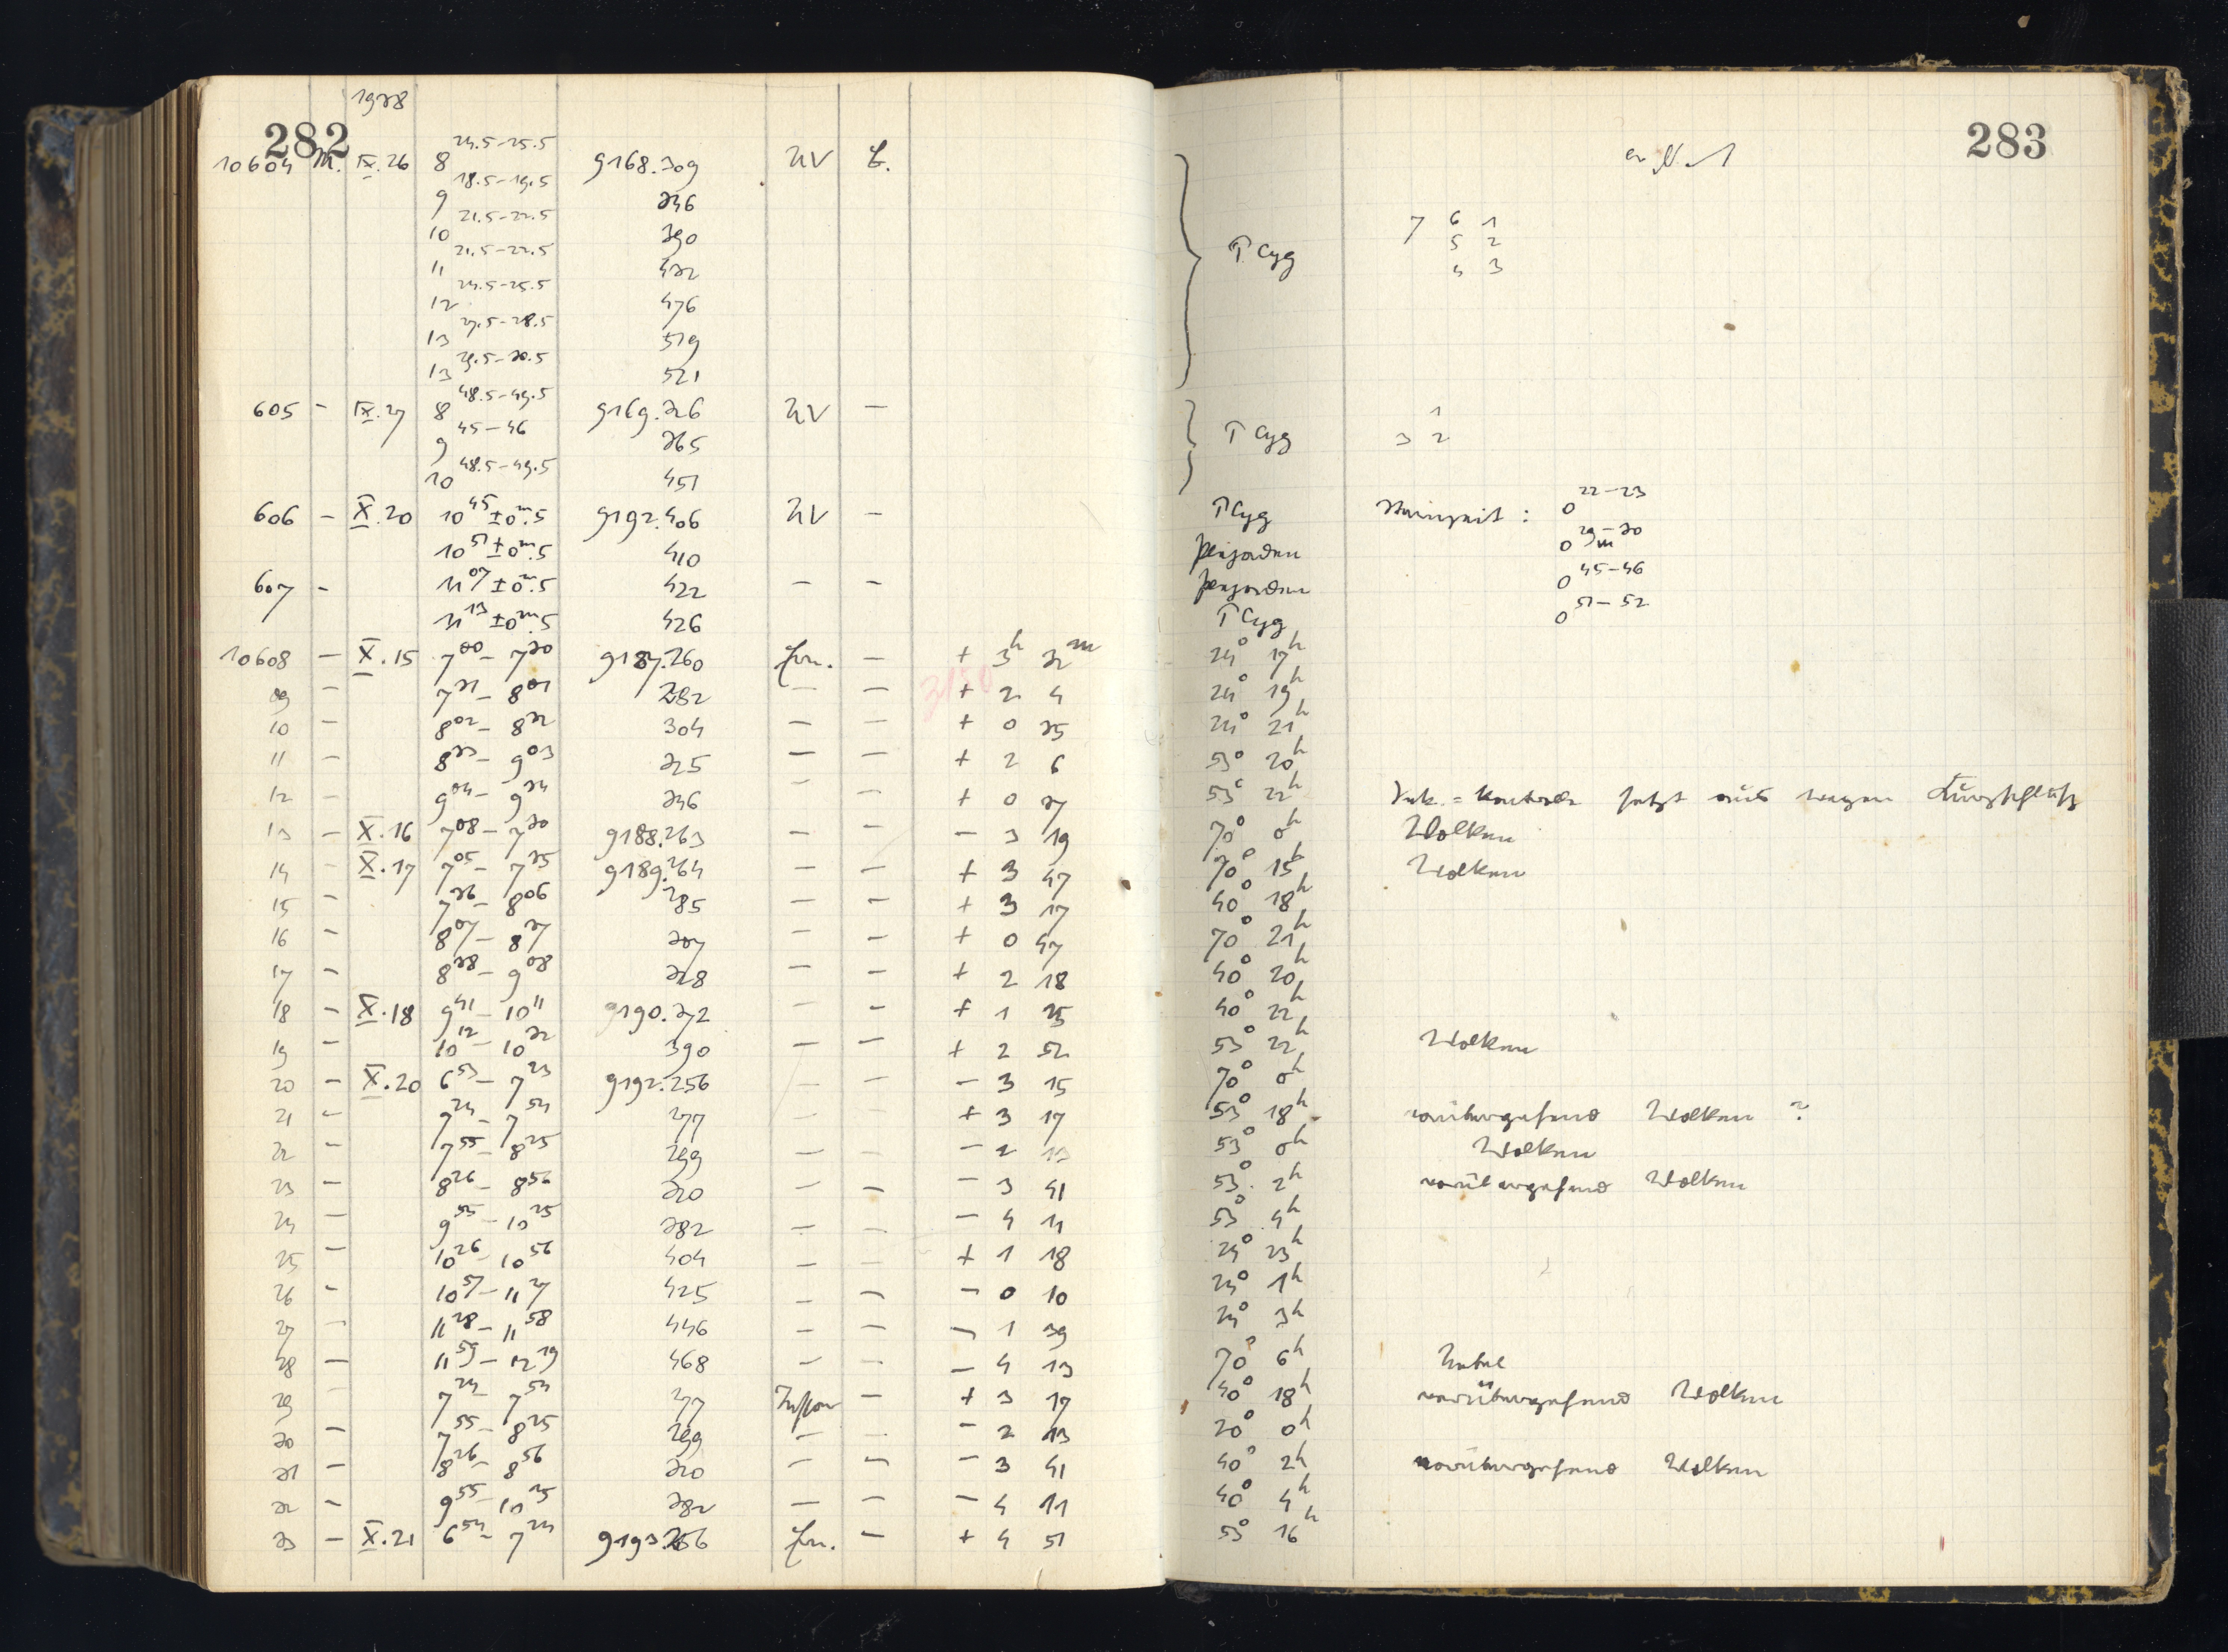 282
1928
10604 M. IX.26 8 24.5-25.5 9168.309 UV L.
9 18.5-19.5 346
10 21.5-22.5 390
11 21.5-22.5 432
12 24.5-25.5 476
13 27.5-28.5 519
13 29.5-30.5 521
605 - IX.27 8 48.5-49.5 9169.326 UV -
9 45-46 365
10 48.5-49.5 451
606 - X.20 10 45 ±0m.5 9192.406 UV -
10 51 ±0m.5 410
607 - 11 07 ±0m.5 422 - -
11 13 ±0m.5 426
10608 - X.15 7 00 - 7 30 9187.260 - + 3h 32m
09 - 7 31 - 8 01 282 - - + 2 4
10 - 8 02 - 8 32 304 - - + 0 35
11 - 8 33 - 9 03 325 - - + 2 6
12 - 9 04 - 9 34 346 - - + 0 37
13 - X.16 7 08 - 7 30 9188.263 - - - 3 19
14 - X.17 7 05 - 7 35 9189.264 - - + 3 47
15 - 7 36 - 8 06 285 - - + 3 17
16 - 8 07 - 8 37 307 - - + 0 47
17 - 8 38 - 9 08 328 - - + 2 18
18 - X.18 9 41 - 10 11 9190.372 - - + 1 35
19 - 10 12 - 10 32 390 - - + 2 52
20 - X.20 6 53 - 7 23 9192.256 - - - 3 15
21 - 7 24 - 7 54 277 - - + 3 17
22 - 7 55 - 8 25 299 - - - 2 13
23 - 8 26 - 8 56 320 - - - 3 41
24 - 9 55 - 10 25 382 - - - 4 11
25 - 10 26 - 10 56 404 - - + 1 18
26 - 10 57 - 11 27 425 - - - 0 10
27 - 11 28 - 11 58 446 - - - 1 39
28 - 11 59 - 12 19 468 - - - 4 13
29 - 7 24 - 7 54 277 - + 3 17
30 - 7 55 - 8 25 299 - - - 2 13
31 - 8 26 - 8 56 320 - - - 3 41
32 - 9 55 - 10 25 382 - - - 4 11
33 - X.21 6 54 - 7 24 9193.256 - + 4 51
283
T Cyg
7 6 1
5 2
4 3
T Cyg
1
3 2
T Cyg Sternzeit: 0 22-23
Plejaden 0 29-30
Plejaden 0 45-46
T Cyg 0 51-52
24° 17h
24° 19h
24° 21h
53° 20h
53° 22h
70° 0h Wolken
70° 15h Wolken
40° 18h
70° 21h
40° 20h
40° 22h
53° 22h Wolken
70° 0h
53° 18h vorübergehend Wolken ?
53° 0h Wolken
53° 2h vorübergehend Wolken
53° 4h
24° 23h
24° 1h
24° 3h
70° 6h Nebel
40° 18h vorübergehend Wolken
20° 0h
40° 2h vorübergehend Wolken
40° 4h
53° 16h